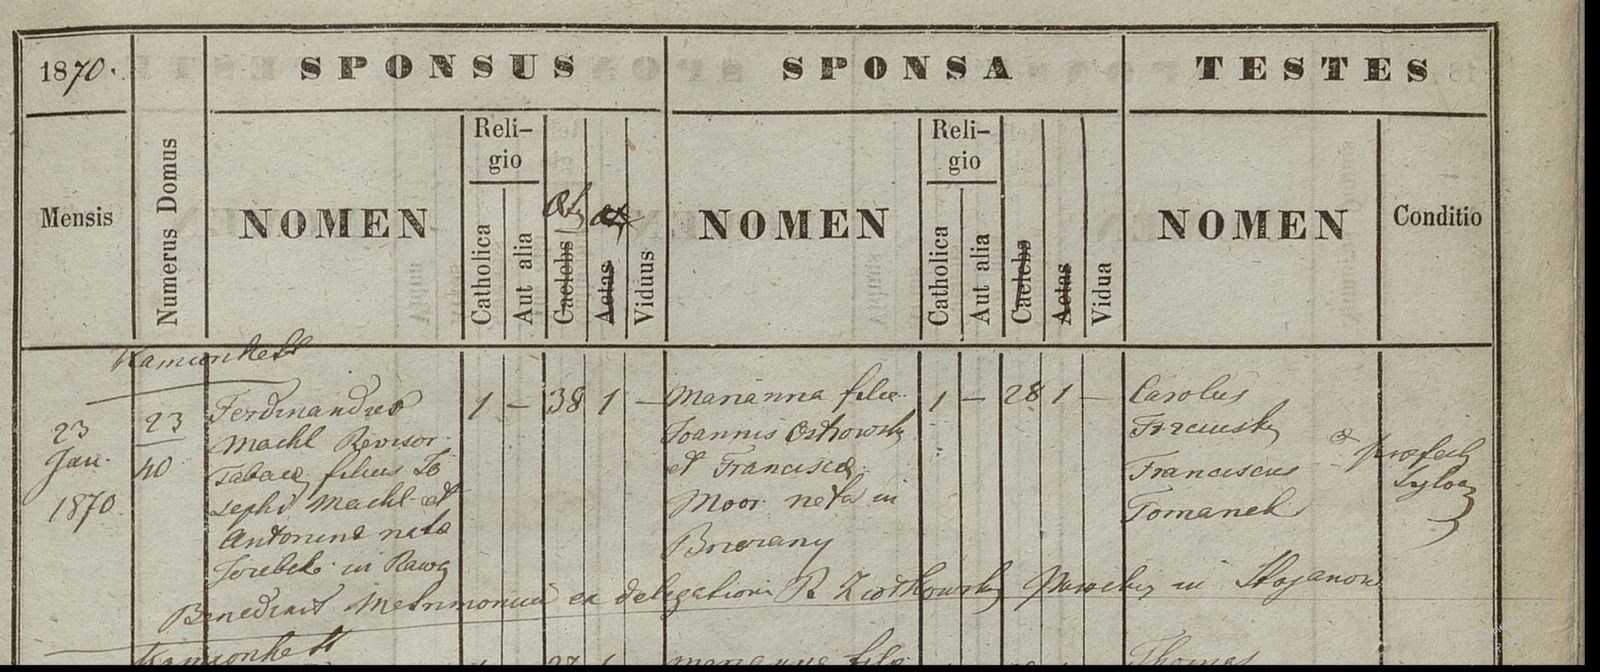 1870.
SPONSUS
SPONSA
TESTES
Mensis
Numerus Domus
NOMEN
Reli-
gio
Catholica
Aut alia
Caelebs
Aetas
Viduus
NOMEN
Reli-
gio
Catholica
Aut alia
Caelebs
Aetas
Vidua
NOMEN
Conditio
23
Jan.
1870
23
40
Ferdinandus
Machl Revisor
Tabac filius Jo
sephi Machl et
Antonina nata
in Rawa
1 – 38 1 –
Marianna filia
Joannis Ostrowski
et Francisca
Moor nata in
1 – 28 1 –
Carolus
Franciscus
Tomanek
Benedixit Matrimonium ex delegatione R. Ziołkowski Parochus in Stojanow
Marianna filia
Thomas